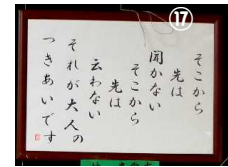 ⑰
そこから
先は
聞かない
そこから
先は
云わない
それが大人の
つきあいです